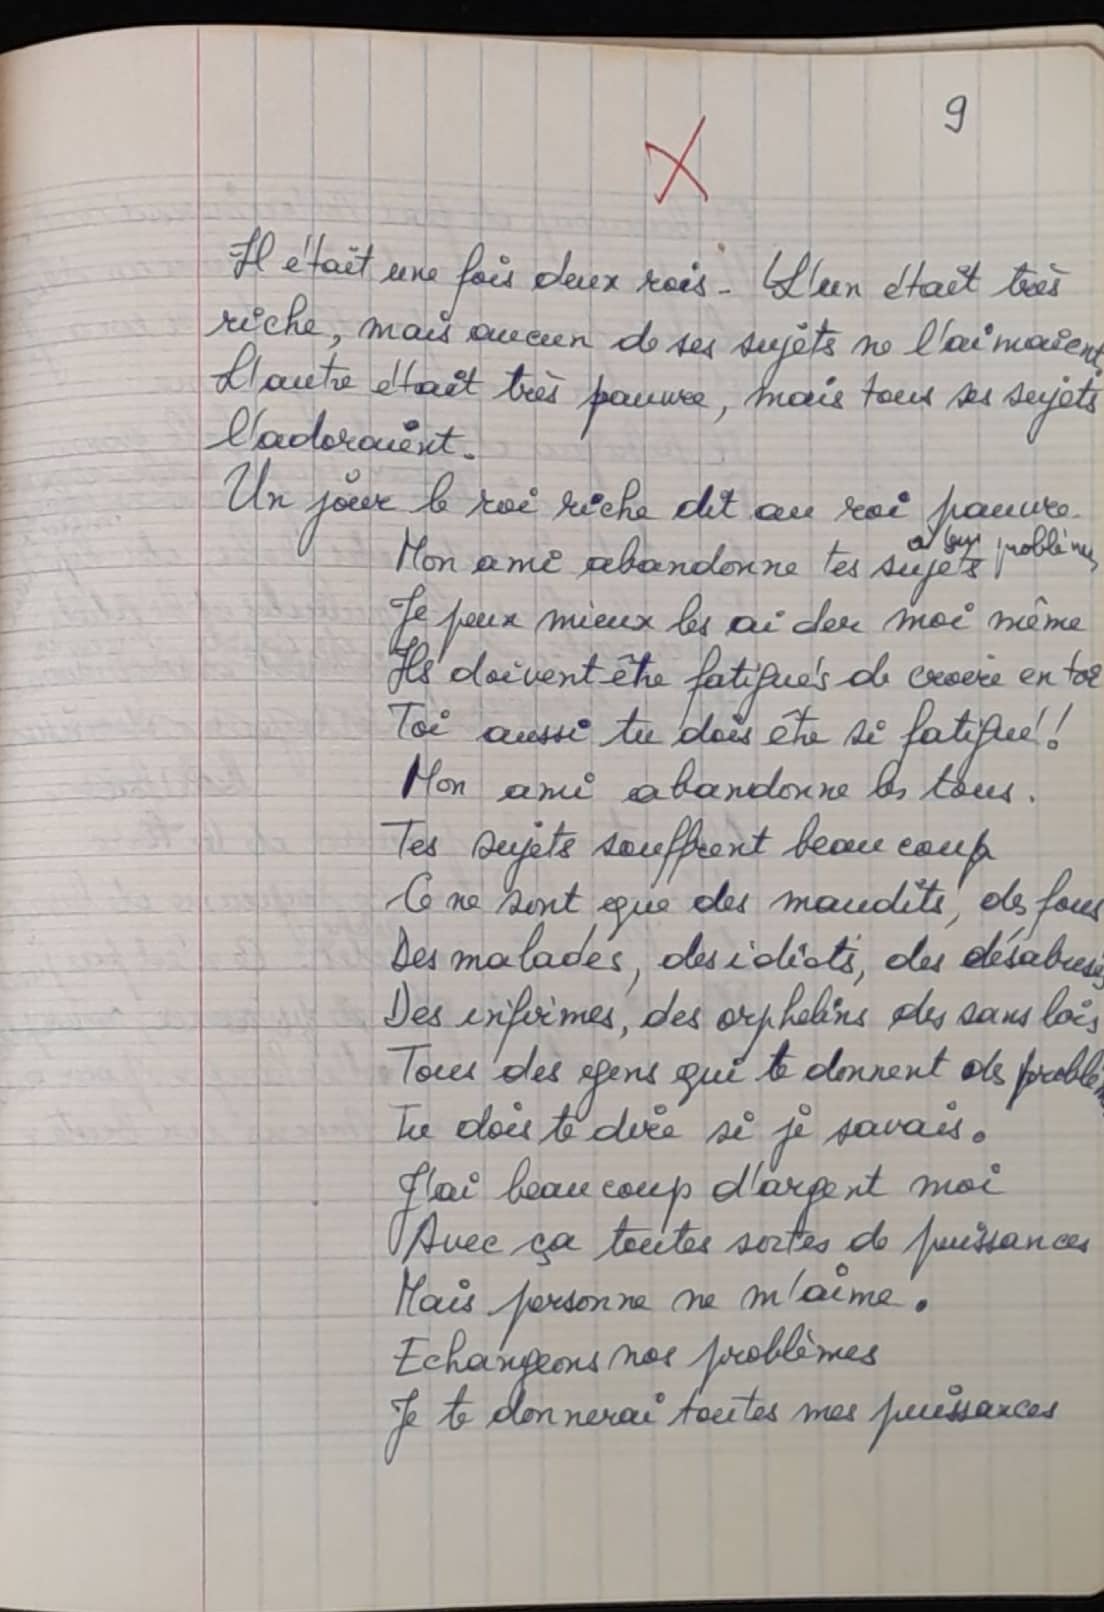 9
X
Il était une fois deux rois. L'un était très
riche, mais aucun de ses sujets ne l'aimaient
L'autre était très pauvre, mais tous ses sujets
l'adoraient.
Un jour le roi riche dit au roi pauvre.
à leurs problèmes
Mon ami abandonne tes sujets
Je peux mieux les aider moi même
Ils doivent être fatigués de croire en toi
Toi aussi tu dois être si fatigué!
Mon ami abandonne les tous.
Tes sujets souffrent beaucoup
Ce ne sont que des maudits, des fous
Des malades, des idiots, des désabusés
Des infirmes, des orphelins des sans lois
Tous des gens qui te donnent des problèmes
Tu dois te dire si je savais.
J'ai beaucoup d'argent moi
Avec ça toutes sortes de puissances
Mais personne ne m'aime.
Echangeons nos problèmes
Je te donnerai toutes mes puissances